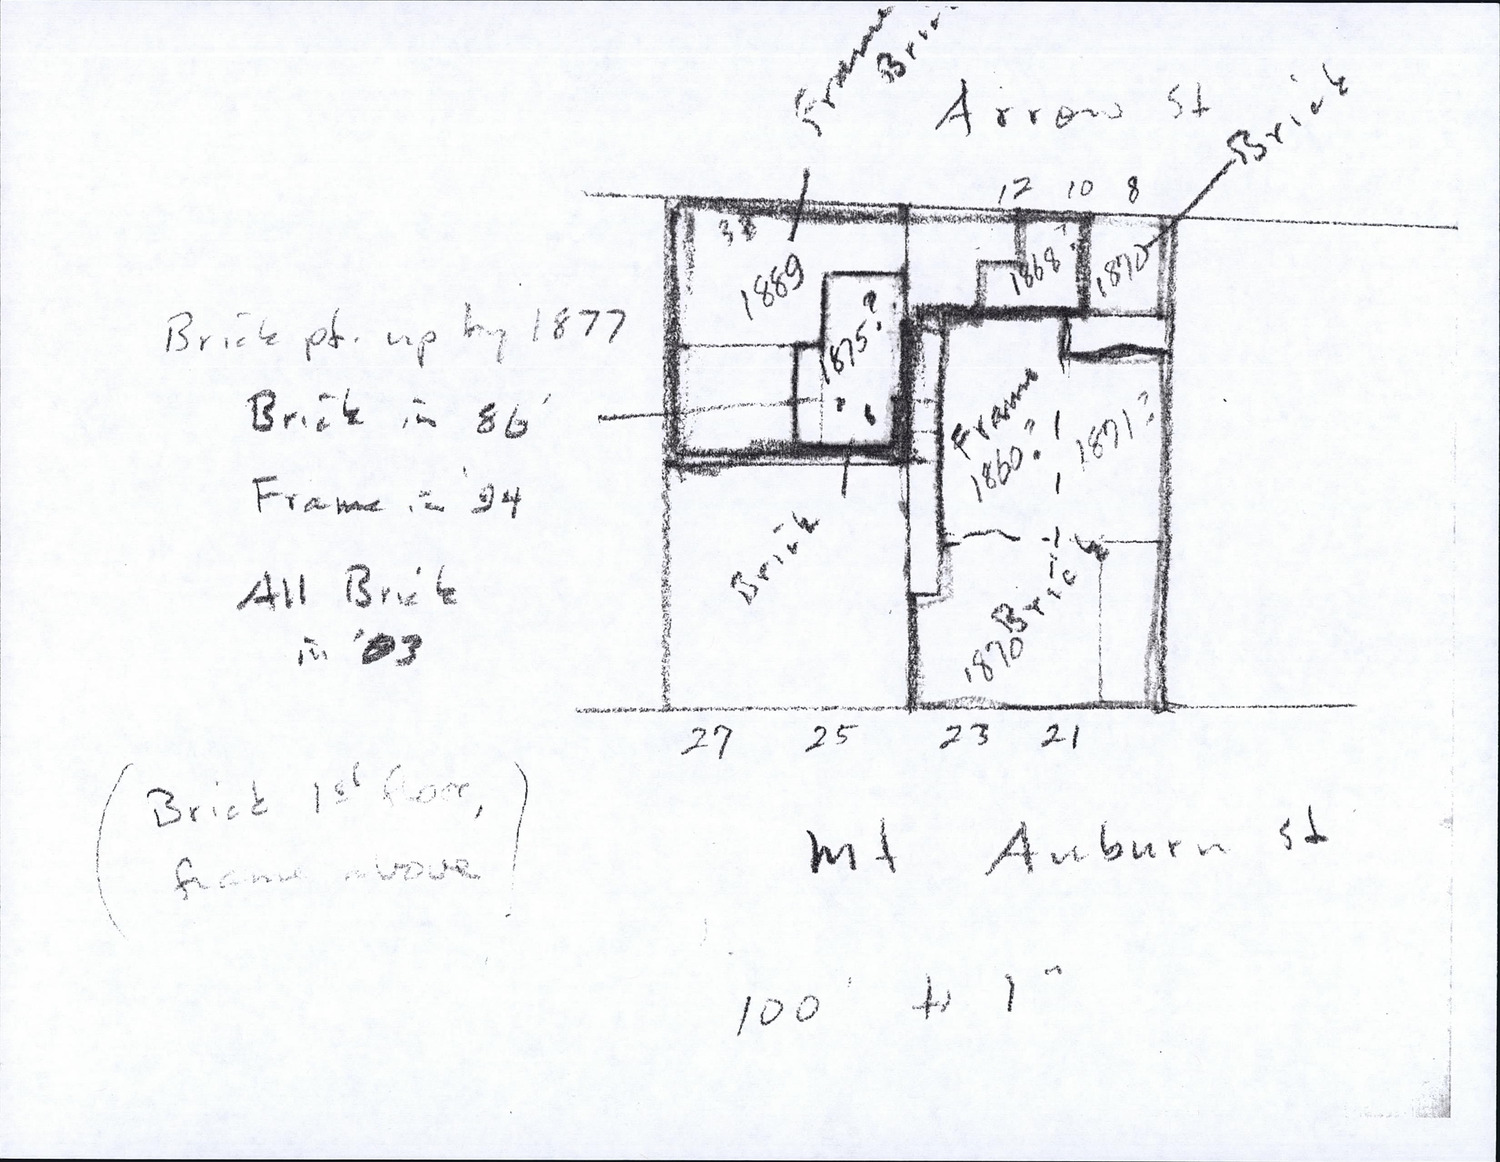 Frame
Arrow St
Brick
12 10 8
38
1889
1868?
1870
Brick pt. up by 1877
1875?
Brick in 86'
Frame
1860?
1871?
Frame in '94
Brick
All Brick
in '03
Brick
1870
27 25 23 21
(Brick 1st floor,
frame above)
Mt Auburn St
100' to 1"